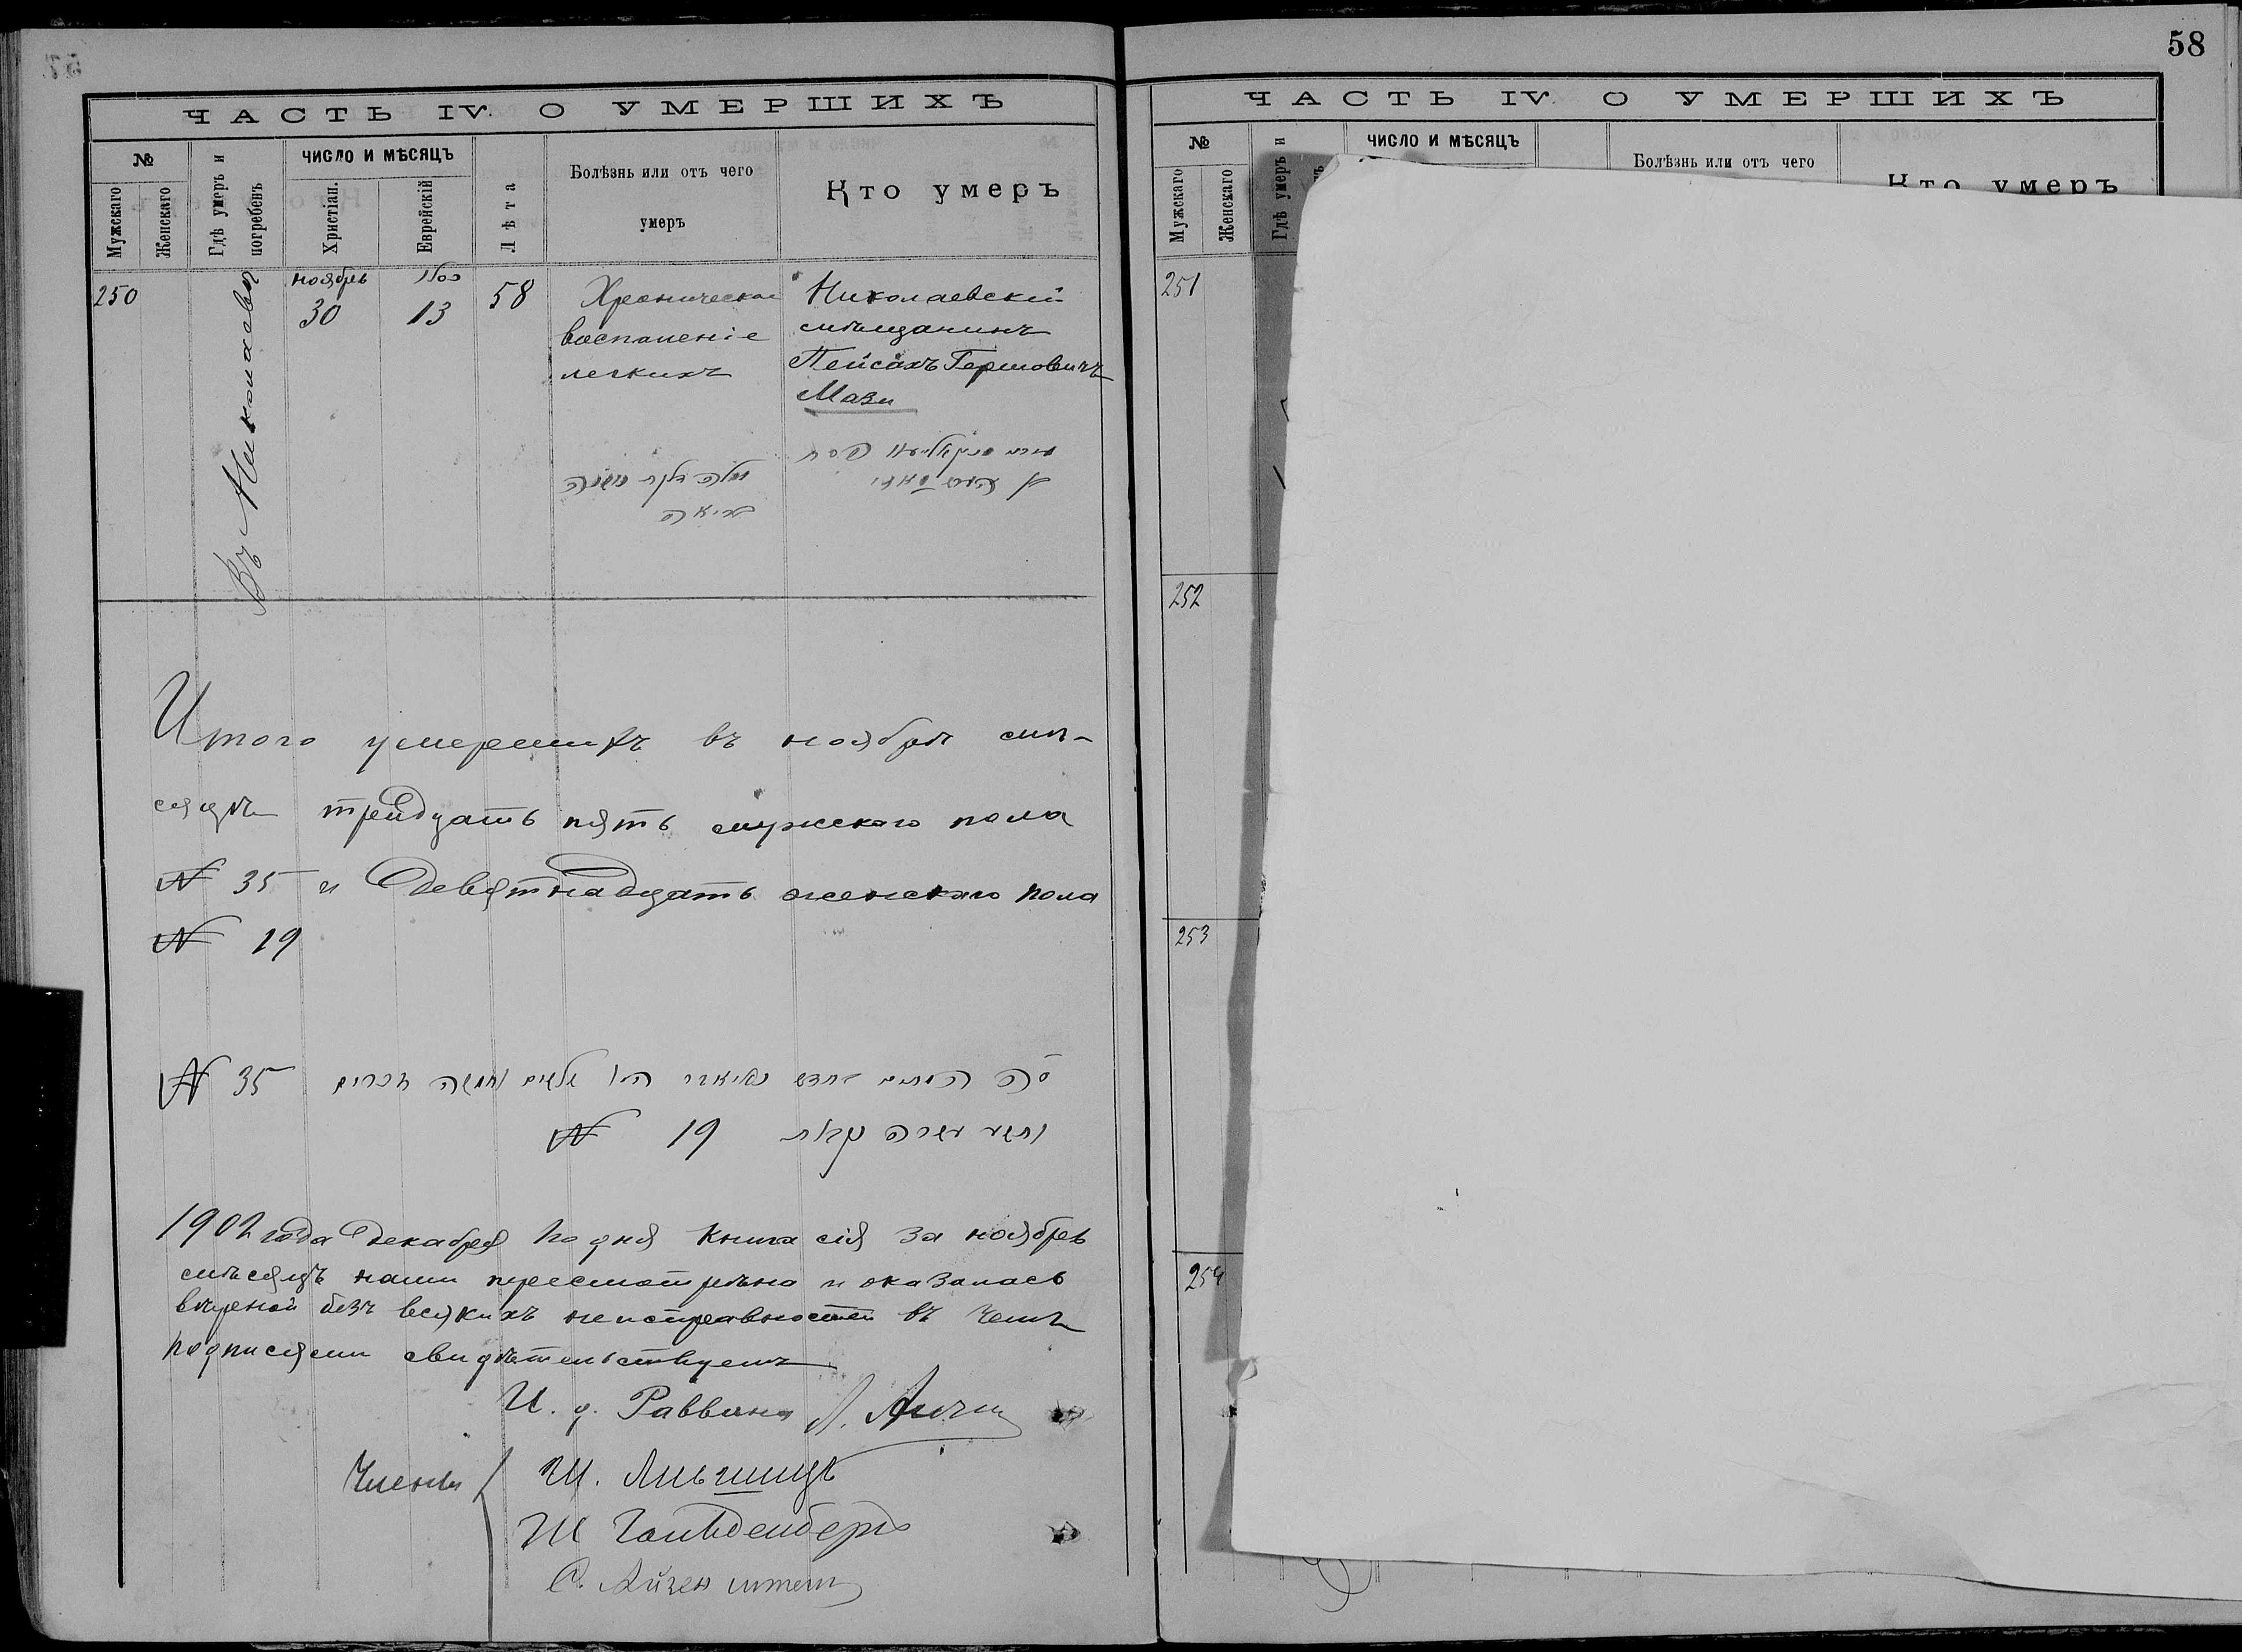 58
ЧАСТЬ IV. О УМЕРШИХЪ
№
Мужскаго
Женскаго
Гдѣ умеръ и погребенъ
ЧИСЛО И МѢСЯЦЪ
Христіан.
Еврейскій
Лѣта
Болѣзнь или отъ чего
умеръ
Кто умеръ
250
Въ Николаевѣ
ноябрь
30
כסלו
13
58
Хроническое
воспаленіе
легкихъ
Николаевскій
мѣщанинъ
Пейсахъ Гершовичъ
Мази
Итого умершихъ въ ноябрѣ мѣ-
сяцѣ тридцать пять мужского пола
№ 35 и девятнадцать женскаго пола
№ 19
№ 35
№ 19
1902 года Декабря дня книга сія за ноябрь
мѣсяцъ нами пересмотрѣна и оказалась
вѣрной безъ всякихъ неисправностей въ чемъ
подписями свидѣтельствуемъ
И. д. Раввина
Члены
Ш. Гольденбергъ
С. Айзенштейн
ЧАСТЬ IV. О УМЕРШИХЪ
№
Мужскаго
Женскаго
Гдѣ умеръ и
ЧИСЛО И МѢСЯЦЪ
Болѣзнь или отъ чего
Кто умеръ
251
252
253
254